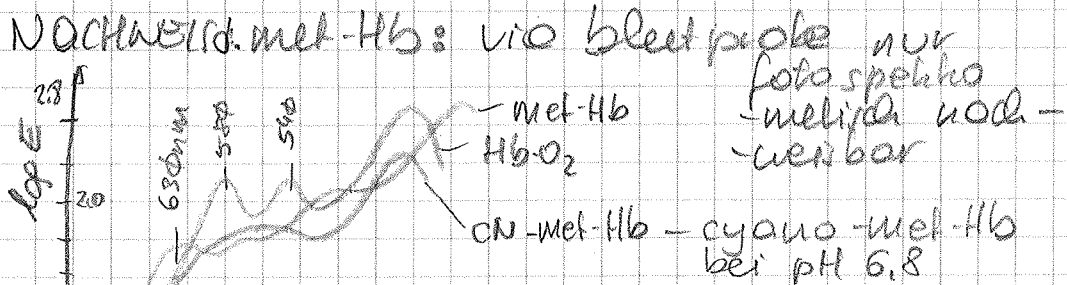 NACHWEIS d. met-Hb: via blutprobe nur
fotospektro
-metrisch nach-
-weisbar
2.8
log E
2.0
630nm
540
met-Hb
Hb-O₂
CN-met-Hb – cyano-met-Hb
bei pH 6,8